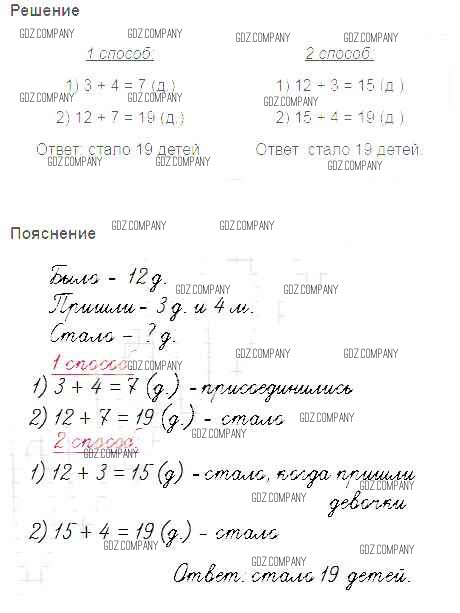 Решение
GDZ.COMPANY GDZ.COMPANY GDZ.COMPANY GDZ.COMPANY
1 способ: 2 способ:
1) 3 + 4 = 7 (д.) 1) 12 + 3 = 15 (д.)
GDZ.COMPANY GDZ.COMPANY GDZ.COMPANY
2) 12 + 7 = 19 (д.) 2) 15 + 4 = 19 (д.)
Ответ: стало 19 детей Ответ: стало 19 детей.
GDZ.COMPANY GDZ.COMPANY GDZ.COMPANY
GDZ.COMPANY GDZ.COMPANY
Пояснение
Было - 12 д.
GDZ.COMPANY GDZ.COMPANY
Пришли - 3 д. и 4 м.
Стало - ? д.
GDZ.COMPANY GDZ.COMPANY
1 способ:
GDZ.COMPANY
1) 3 + 4 = 7 (д.) - присоединились
2) 12 + 7 = 19 (д.) - стало
GDZ.COMPANY
GDZ.COMPANY
2 способ:
GDZ.COMPANY
1) 12 + 3 = 15 (д) - стало, когда пришли
GDZ.COMPANY
GDZ.COMPANY
девочки
2) 15 + 4 = 19 (д.) - стало
GDZ.COMPANY GDZ.COMPANY
GDZ.COMPANY
Ответ: стало 19 детей.
GDZ.COMPANY